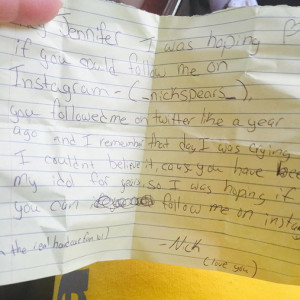 Jennifer I was hoping
if you could follow me on
Instagram - (_nickspears_),
you followed me on twitter like a year
ago and I remember that day I was crying
I couldnt believe it, caus you have been
my idol for years, so I was hoping if
you can follow me on insta
- Nick
(I love you)